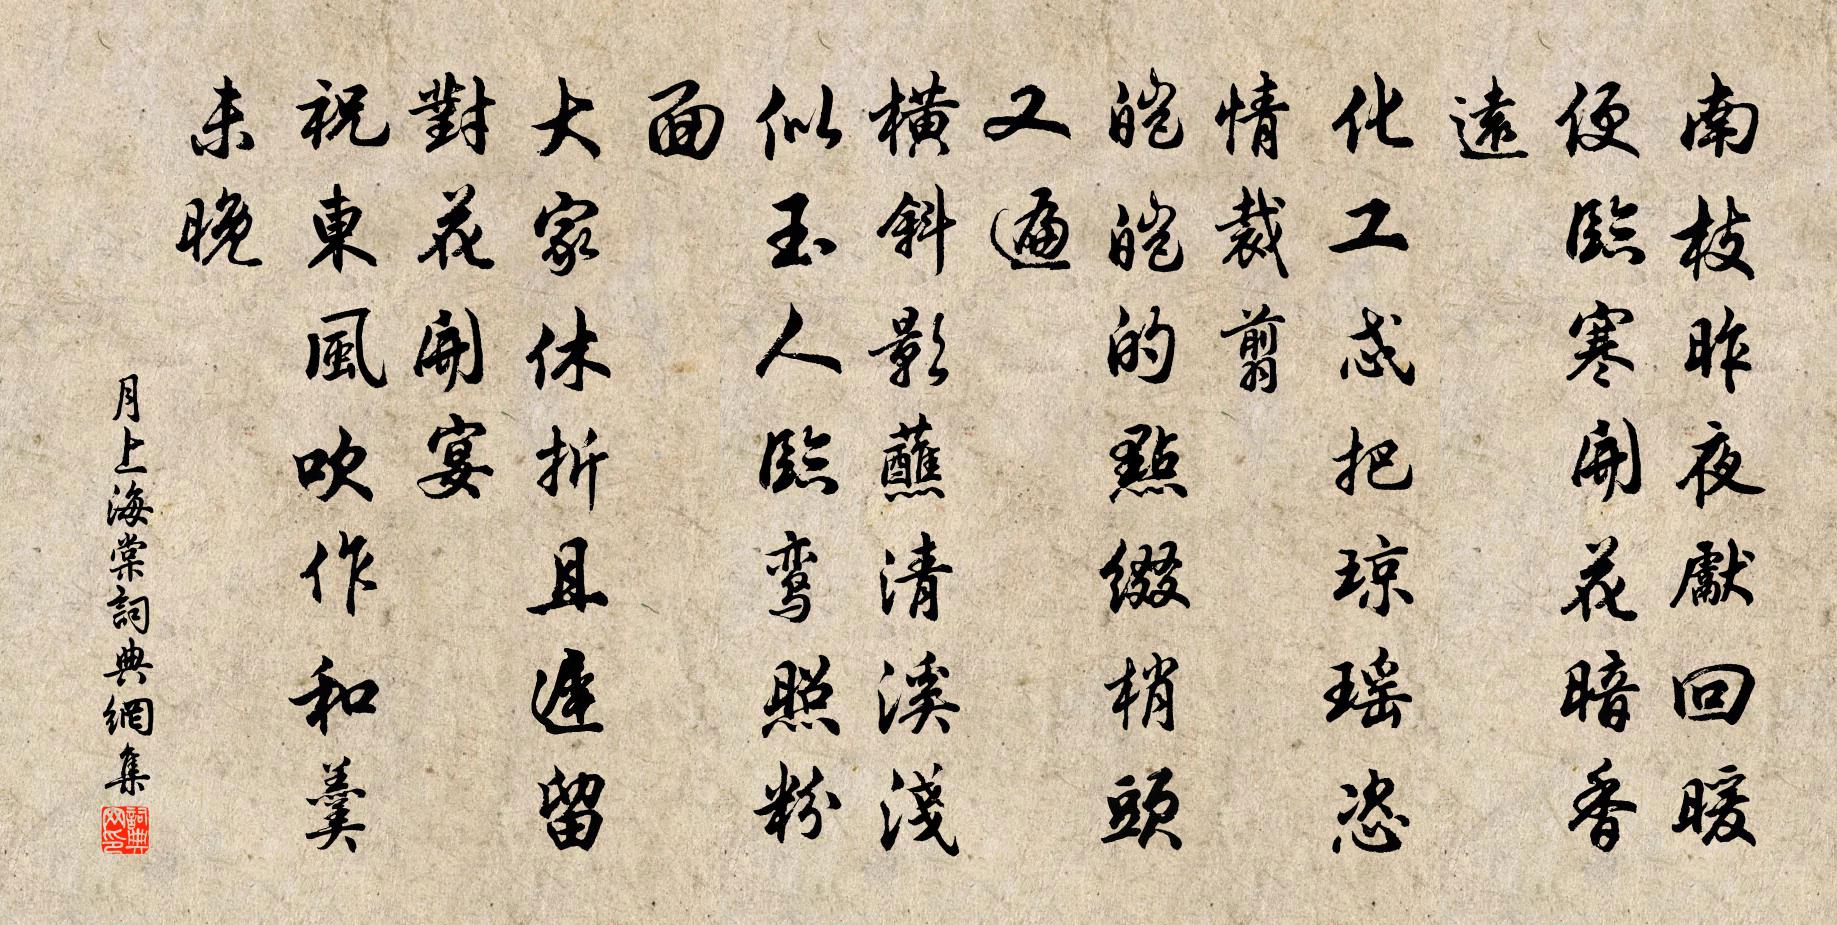 南枝昨夜獻回暖
便臨寒開花暗香
遠
化工忒把琼瑶恣
情裁剪
皚皚的點綴梢頭
又遍
橫斜影蘸清溪淺
似玉人臨鸾照粉
面
大家休折且遲留
對花開宴
祝東風吹作和羹
未晚
月上海棠詞典網集
詞典网印